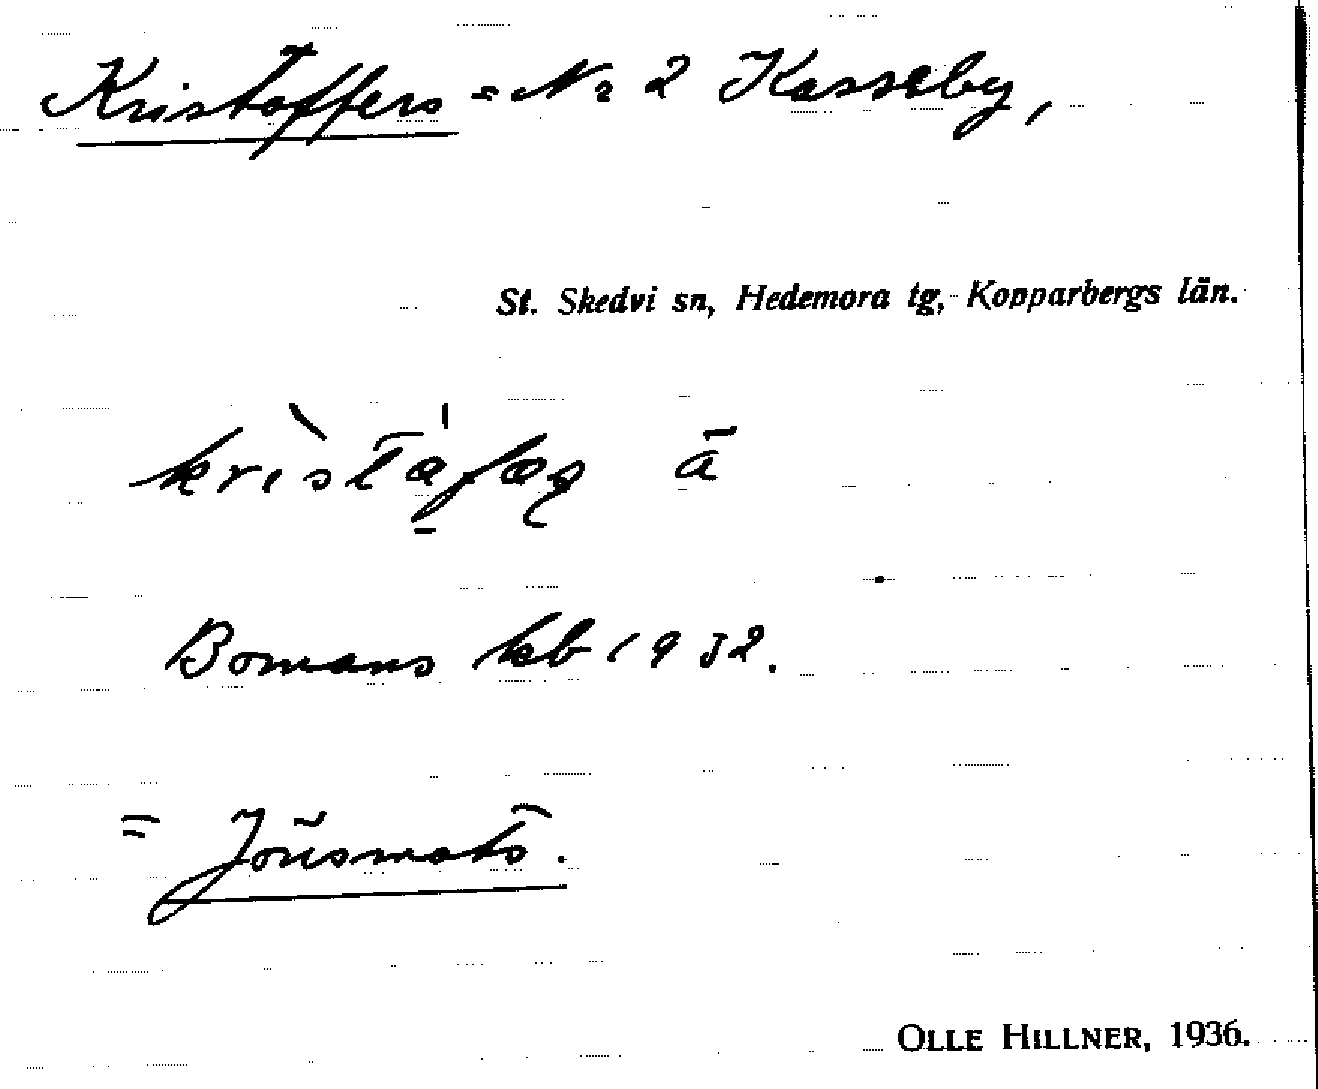 Kristoffers = Nr 2 Kasseby,
St. Skedvi sn, Hedemora tg, Kopparbergs län.
ā
Bomans kb 1932.
= Jönsmats.
OLLE HILLNER, 1936.